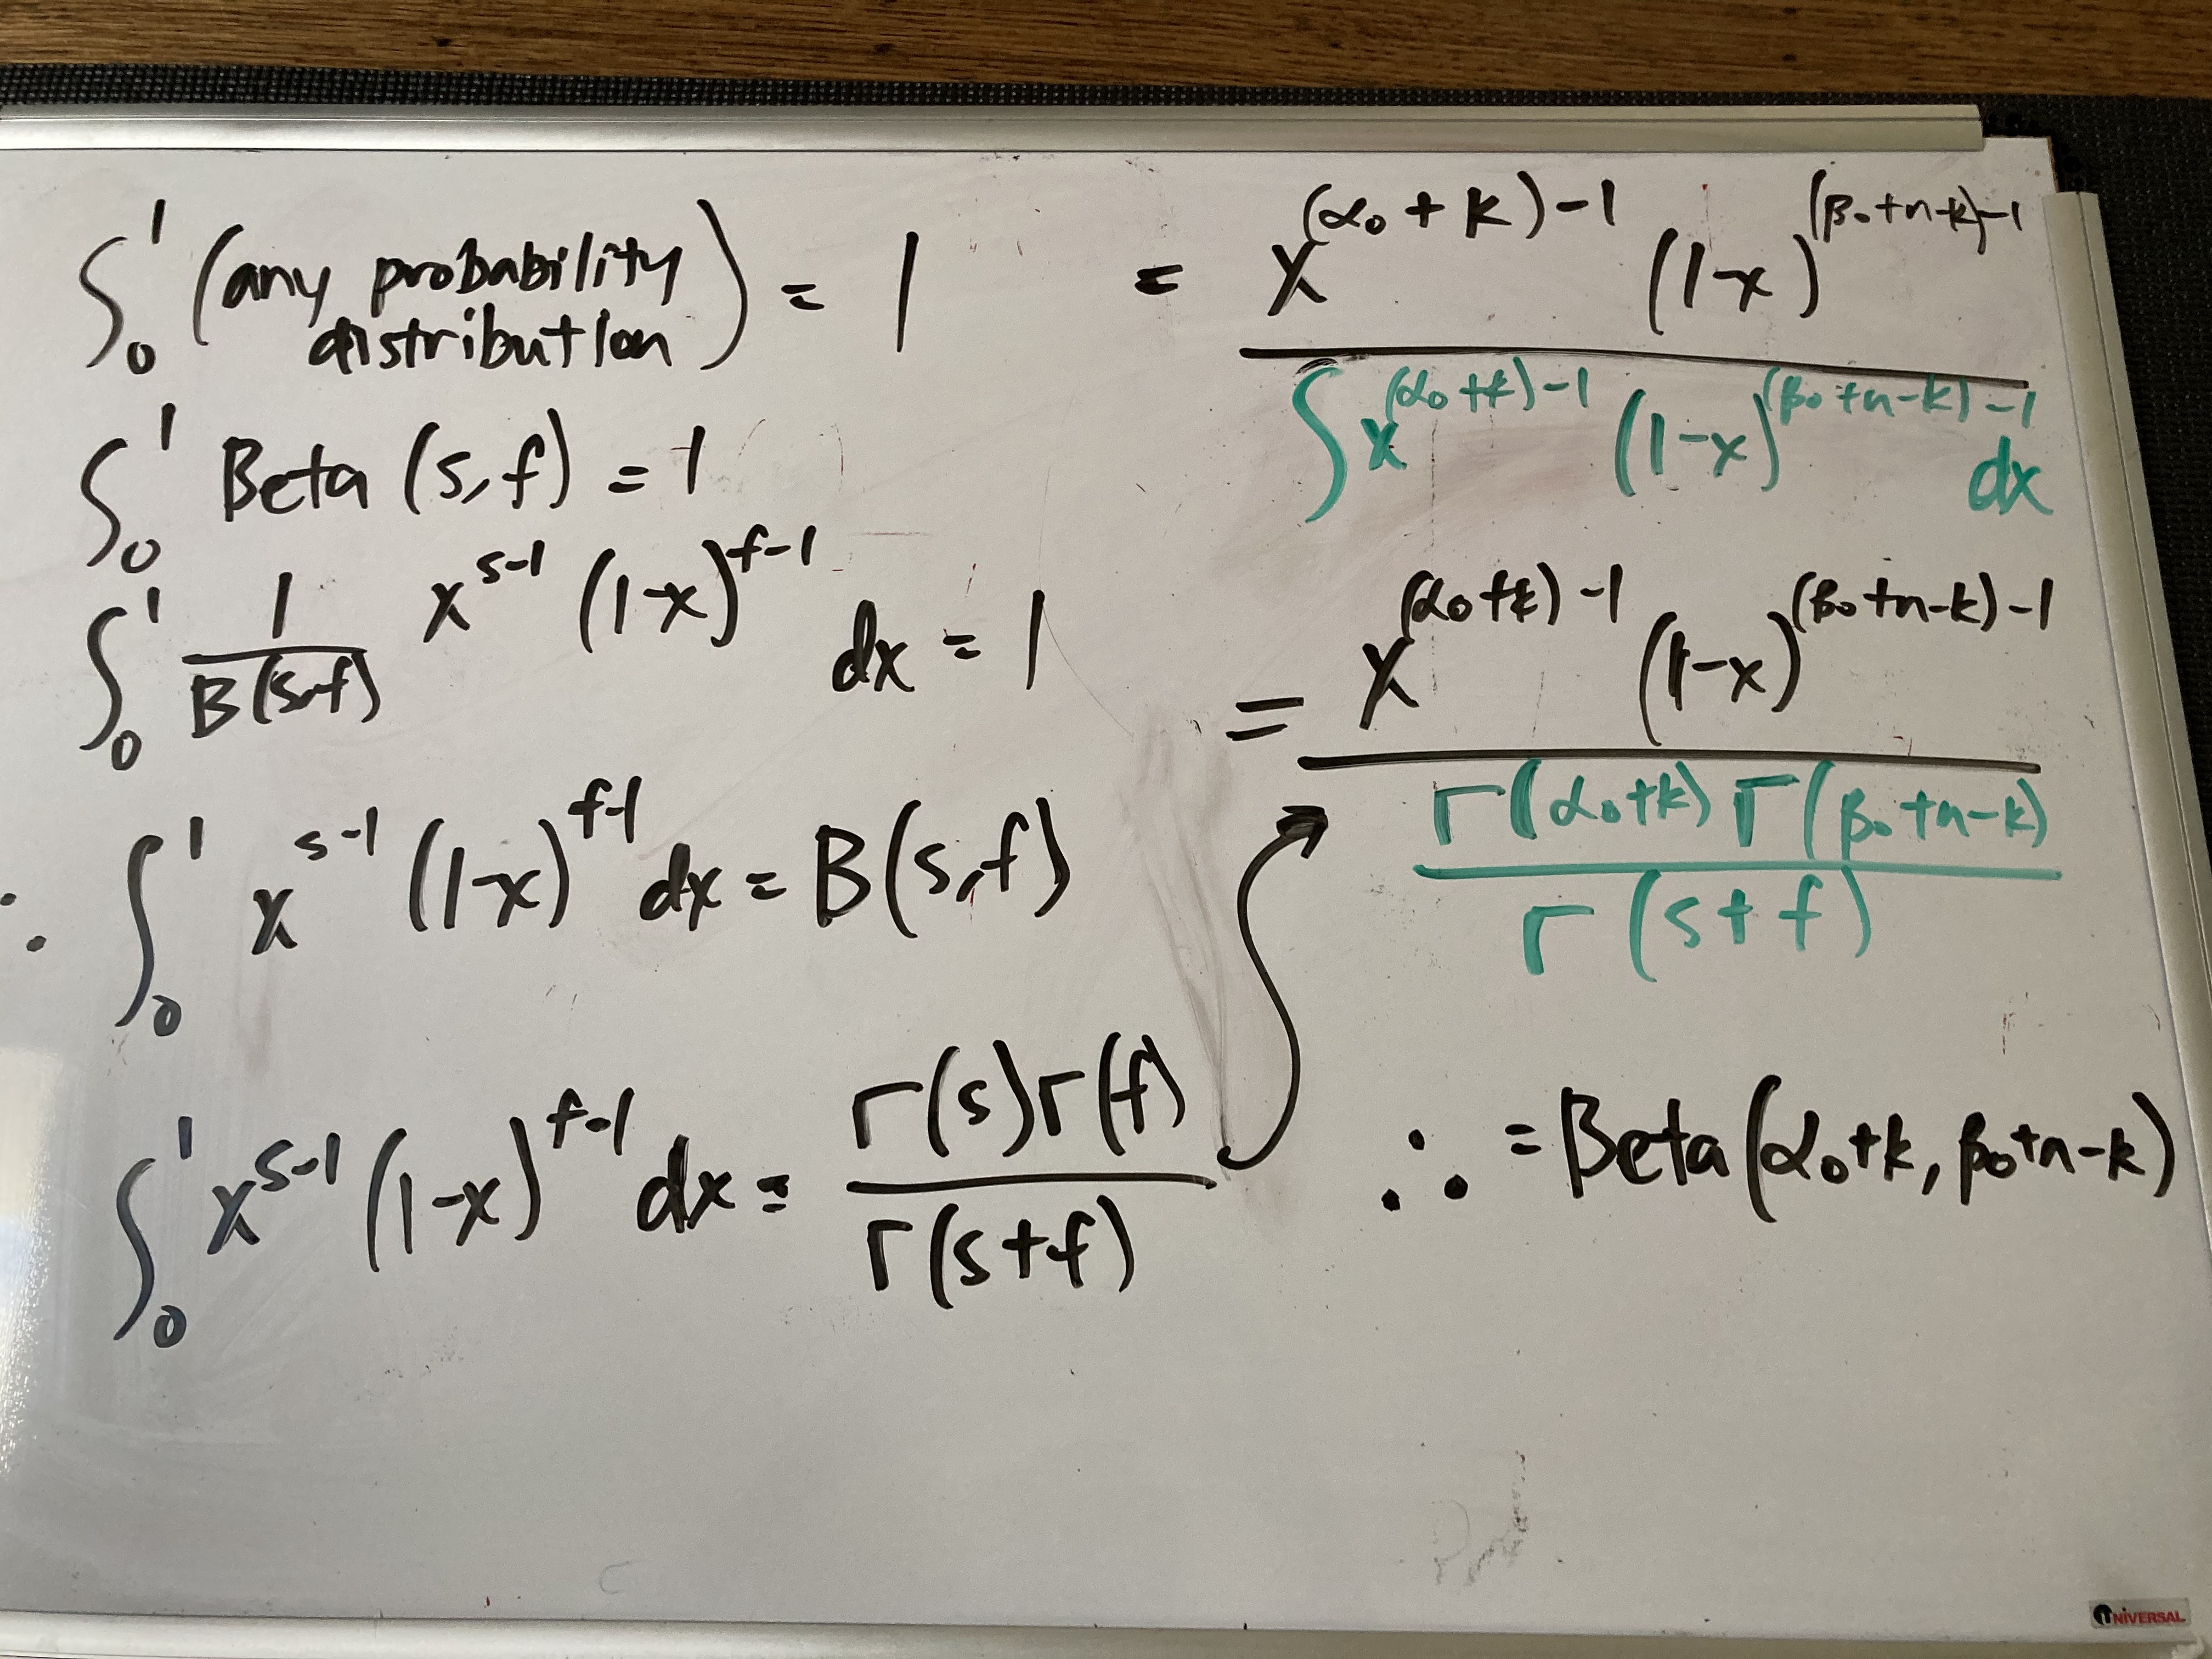 ∫₀¹ (any probability
distribution) = 1
∫₀¹ Beta (s,f) = 1
∫₀¹ 1/B(s,f) x^(s-1) (1-x)^(f-1) dx = 1
∴ ∫₀¹ x^(s-1) (1-x)^(f-1) dx = B(s,f)
∫₀¹ x^(s-1) (1-x)^(f-1) dx = Γ(s)Γ(f) / Γ(s+f)
= x^((α₀+k)-1) (1-x)^((β₀+n-k)-1)
∫ x^((α₀+k)-1) (1-x)^((β₀+n-k)-1) dx
= x^((α₀+k)-1) (1-x)^((β₀+n-k)-1)
Γ(α₀+k) Γ(β₀+n-k)
Γ(s+f)
∴ = Beta(α₀+k, β₀+n-k)
UNIVERSAL